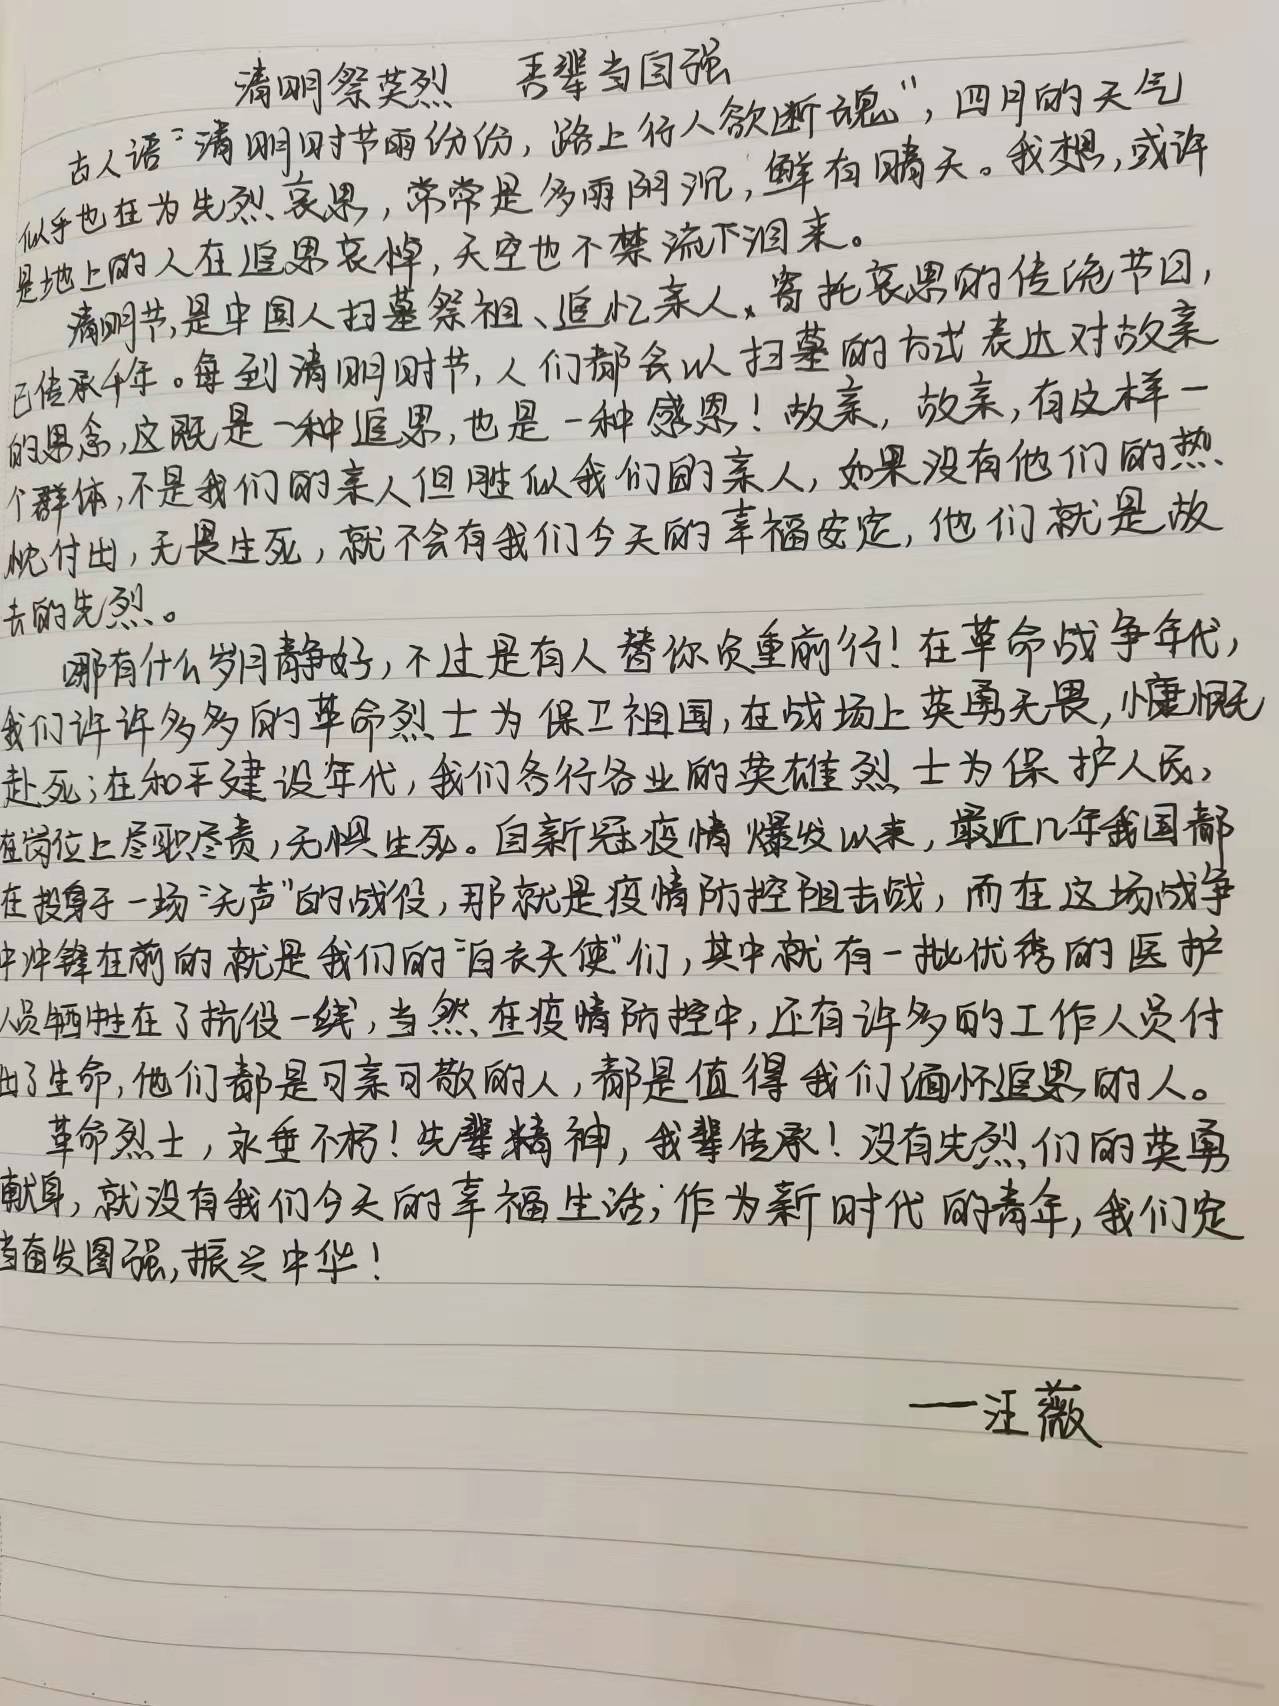 清明祭英烈 吾辈当自强
古人语:“清明时节雨份份,路上行人欲断魂”,四月的天气
似乎也在为先烈哀思,常常是多雨阴沉,鲜有晴天。我想,或许
是地上的人在追思哀悼,天空也不禁流下泪来。
清明节,是中国人扫墓祭祖、追忆亲人、寄托哀思的传统节日,
已传承千年。每到清明时节,人们都会以扫墓的方式表达对故亲
的思念,这既是一种追思,也是一种感恩!故亲,故亲,有这样一
个群体,不是我们的亲人但胜似我们的亲人,如果没有他们的热
忱付出,无畏生死,就不会有我们今天的幸福安定,他们就是故
去的先烈。
哪有什么岁月静好,不过是有人替你负重前行!在革命战争年代,
我们许许多多的革命烈士为保卫祖国,在战场上英勇无畏,慷慨
赴死;在和平建设年代,我们各行各业的英雄烈士为保护人民,
在岗位上尽职尽责,无惧生死。自新冠疫情爆发以来,最近几年我国都
在投身于一场“无声”的战役,那就是疫情防控阻击战,而在这场战争
中冲锋在前的就是我们的“白衣天使”们,其中就有一批优秀的医护
人员牺牲在了抗役一线,当然在疫情防控中,还有许多的工作人员付
出了生命,他们都是可亲可敬的人,都是值得我们缅怀追思的人。
革命烈士,永垂不朽!先辈精神,我辈传承!没有先烈们的英勇
献身,就没有我们今天的幸福生活;作为新时代的青年,我们定
当奋发图强,振兴中华!
—汪薇